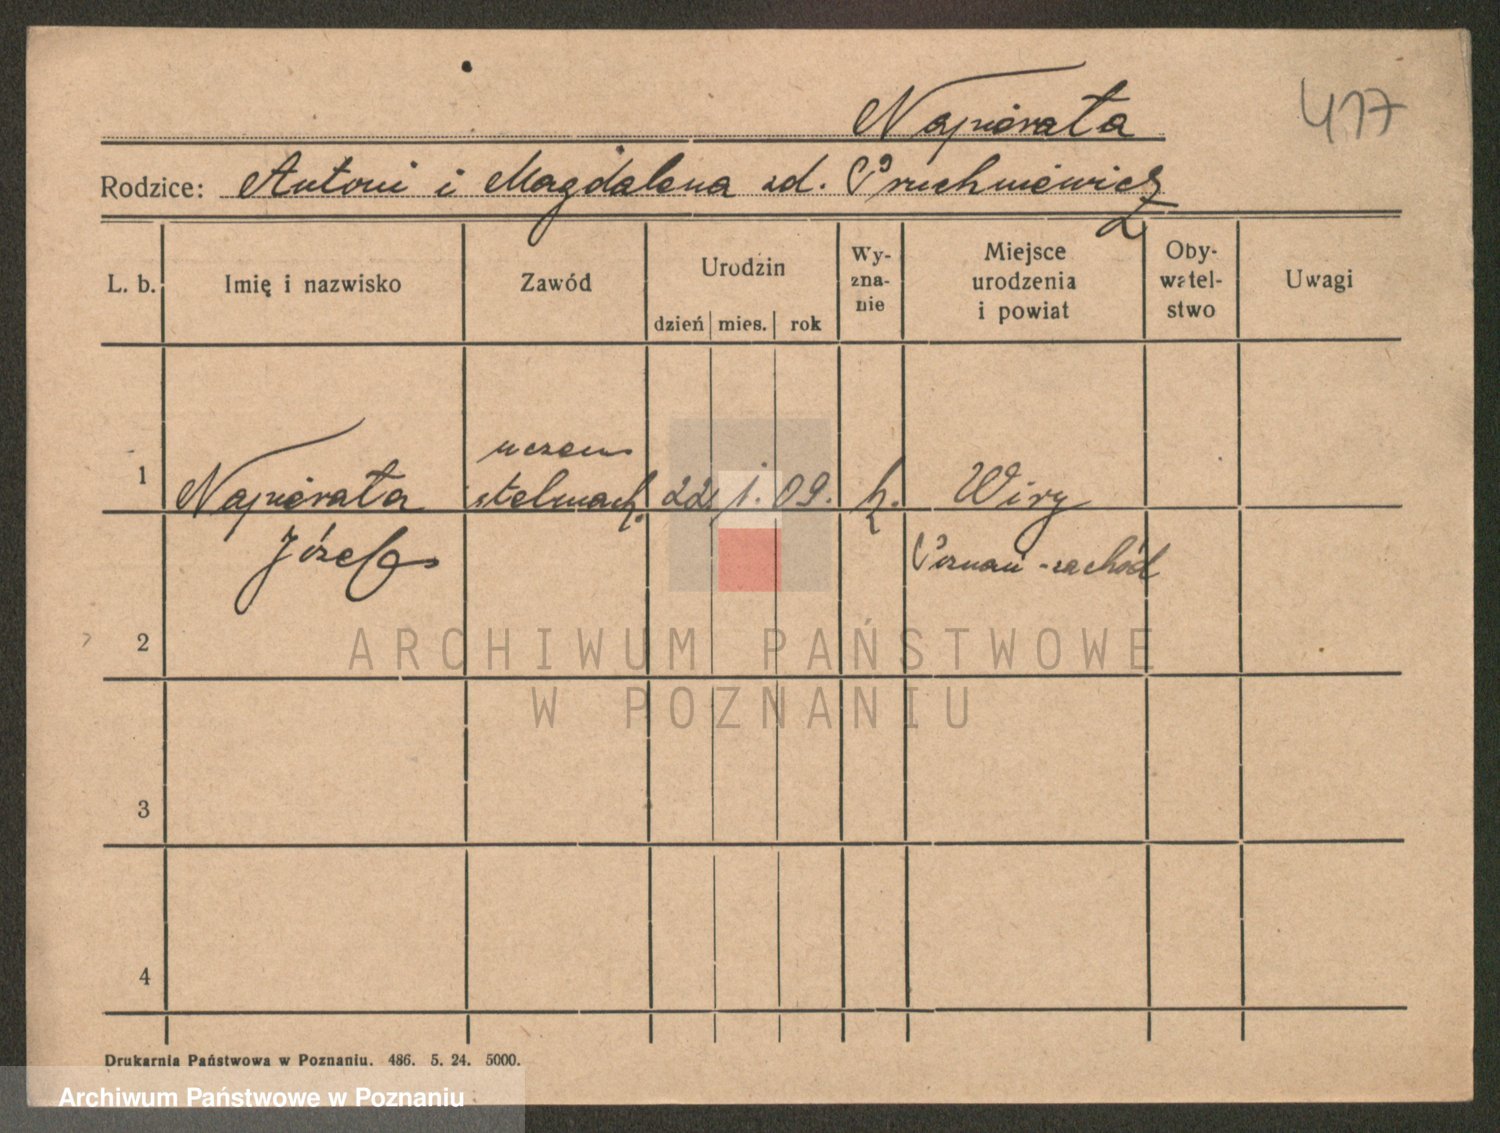 Napierała
417
Rodzice: Antoni i Magdalena zd. Pruchniewicz
L. b. Imię i nazwisko Zawód Urodzin Wy-zna-nie Miejsce urodzenia i powiat Oby-watel-stwo Uwagi
dzień mies. rok
1 Napierała uczeń stelmach. 22. 1. 09. k. Wiry
Józef Poznań-zachód
2
3
4
ARCHIWUM PAŃSTWOWE
W POZNANIU
Drukarnia Państwowa w Poznaniu. 486. 5. 24. 5000.
Archiwum Państwowe w Poznaniu